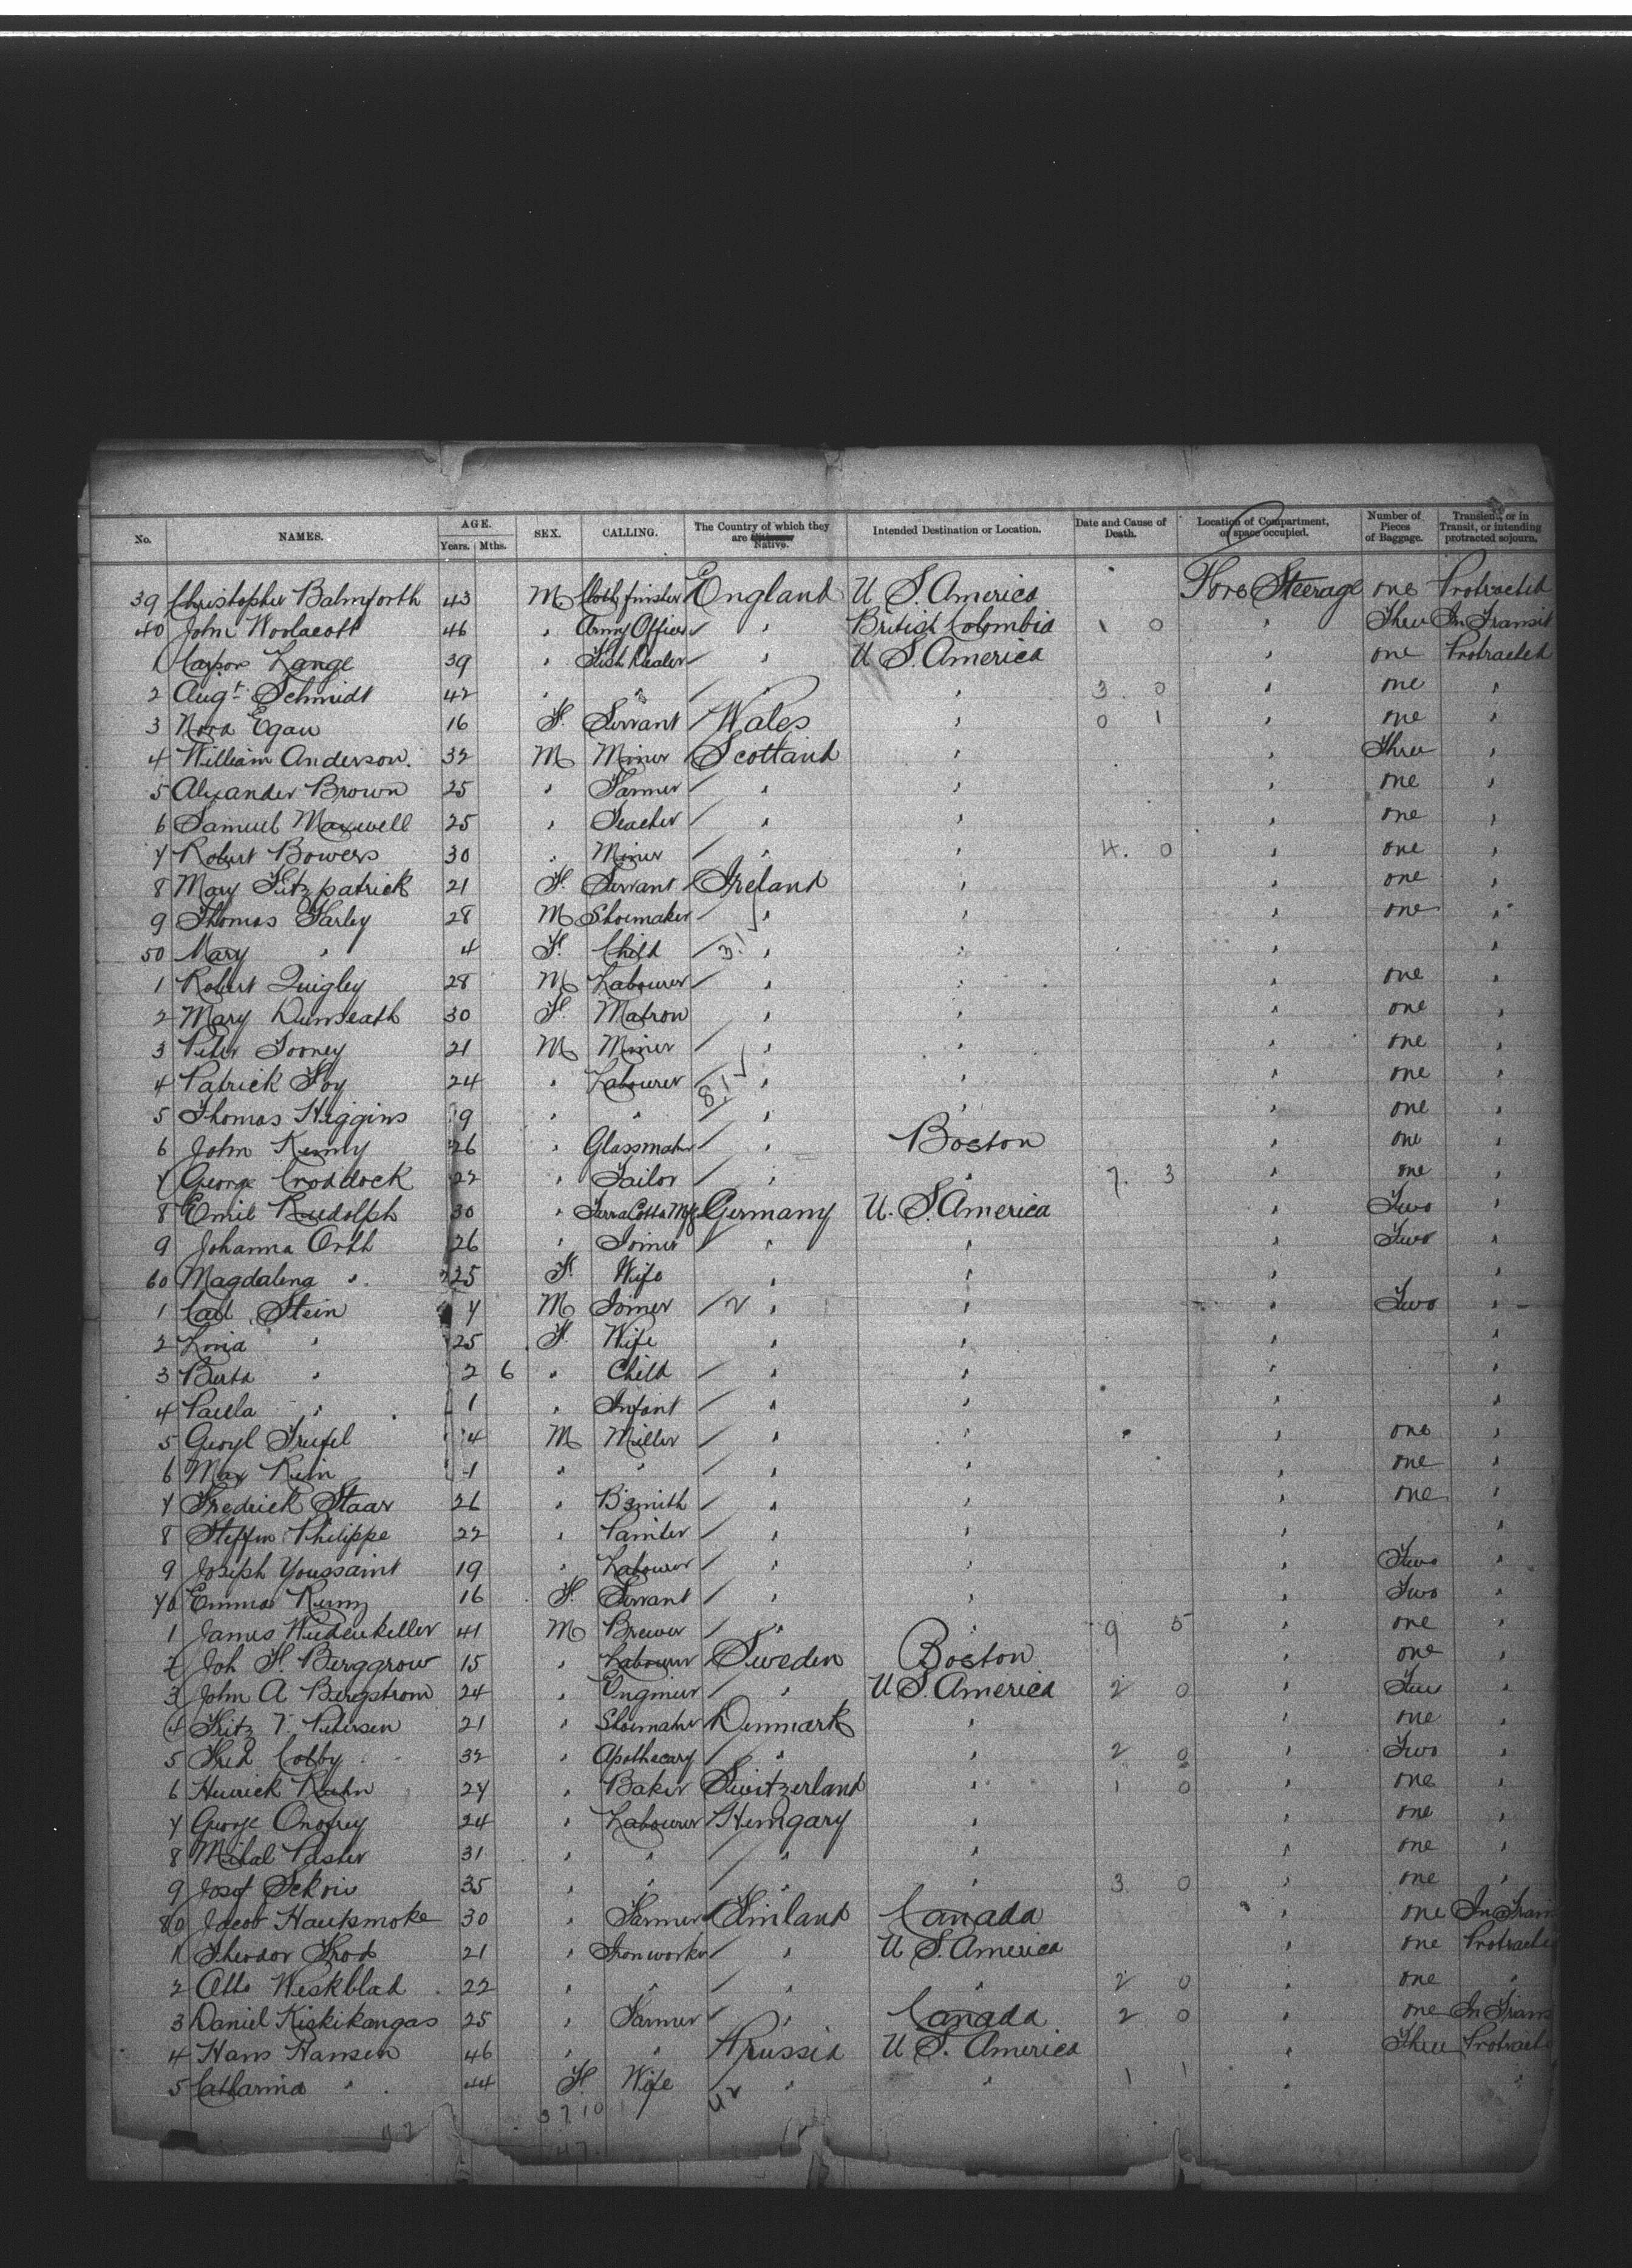 No. NAMES. AGE. Years. Mths. SEX. CALLING. The Country of which they are Native. Intended Destination or Location. Date and Cause of Death. Location of Compartment, or space occupied. Number of Pieces of Baggage. Transient, or in Transit, or intending protracted sojourn.
39 Christopher Balmforth 43 M Cloth finisher England U S. America Fore Steerage one Protracted
40 John Woolacott 46 " Army Officer " British Colombia 1 0 " Three In Transit
1 Lange 39 " Fish Dealer " U S. America " one Protracted
2 Augt. Schmidt 42 " " " " 3. 0 " one "
3 Nora Egan 16 F. Servant Wales " 0 1 " one "
4 William Anderson. 32 M Miner Scotland " " Three "
5 Alexander Brown 25 " Farmer " " " one "
6 Samuel Maxwell 25 " Teacher " " " one "
7 Robert Bowers 30 " Miner " " 4. 0 " one "
8 Mary Fitzpatrick 21 F. Servant Ireland " " one "
9 Thomas Farley 28 M Shoemaker " " " one "
50 Mary " 4 F. Child 3.1 " " " "
1 Robert Quigley 28 M Labourer " " " one "
2 Mary Dunseath 30 F. Matron " " " one "
3 Peter Tooney 21 M Miner " " " one "
4 Patrick Foy 24 " Labourer 8.1 " " " one "
5 Thomas Higgins 9 " " " " " one "
6 John Kenny 26 " Glassmakr " Boston " one "
7 George Craddock 22 " Tailor " " 7. 3 " one "
8 Emil Rudolph 30 " Terra Cotta Mfg Germany U. S. America " Two "
9 Johanna Orth 26 " Joiner " " " Two "
60 Magdalena " 25 F. Wife " " " "
1 Carl Stein 4 M Joiner 2 " " " Two "
2 " 25 F. Wife " " " "
3 Berta " 2 6 " Child " " " "
4 Paula " 1 " Infant " " " "
5 4 M Miller " " " one "
6 Max Kein 1 " " " " " one "
7 Fredrick Staar 26 " B'smith " " " one "
8 Steffin Philippe 22 " Painter " " " "
9 Joseph Youssaint 19 " Labourer " " " Two "
70 Emma 16 F. Servant " " " Two "
1 James Wiedenkeller 41 M Brewer " " 9 5 " one "
2 Joh F. Berggrow 15 " Labourer Sweden Boston " one "
3 John A Bergstrom 24 " Engineer " U S. America 2 0 " "
4 Fritz V. Petersen 21 " Shoemakr Denmark " " one "
5 Fred Colby 32 " Apothecary " " 2 0 " Two "
6 Heinrick Kuhn 24 " Baker Switzerland " 1 0 " one "
7 George Onofrey 24 " Labourer Hungary " " one "
8 Mihal Paster 31 " " " " " one "
9 Josef Sekoiv 35 " " " " 3. 0 " one "
80 Jacob Hautsmoke 30 " Farmer Finland Canada " one In Trans
1 Theodor Frod 21 " Ironworkr " U S. America " one Protracted
2 Otto Weskblad 22 " " " " 2 0 " one "
3 Daniel Kiskikangas 25 " Farmer " Canada 2. 0 " one In Trans
4 Hans Hansen 46 " " Prussia U S. America " Three Protracte
5 Catharina " 44 F. Wife " " 1 1 " "
37.10
47.